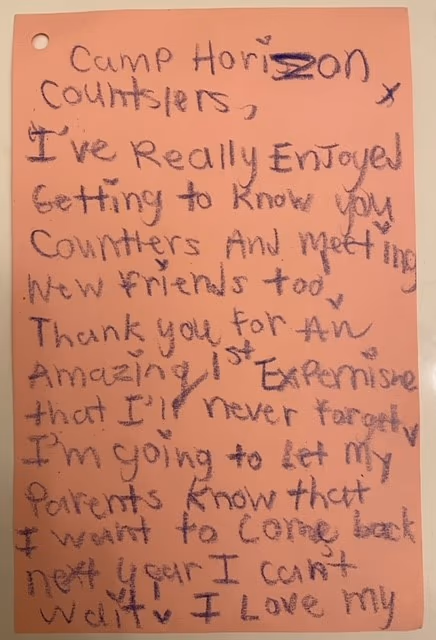 Camp Horizon
Countslers,
I've Really Enjoyed
Getting to know you
Countlers And meeting
New friends too
Thank you for An
Amazing 1st Expernise
that I'll never forget
I'm going to Let My
Parents know that
I want to come back
next year I can't
wait! I Love my